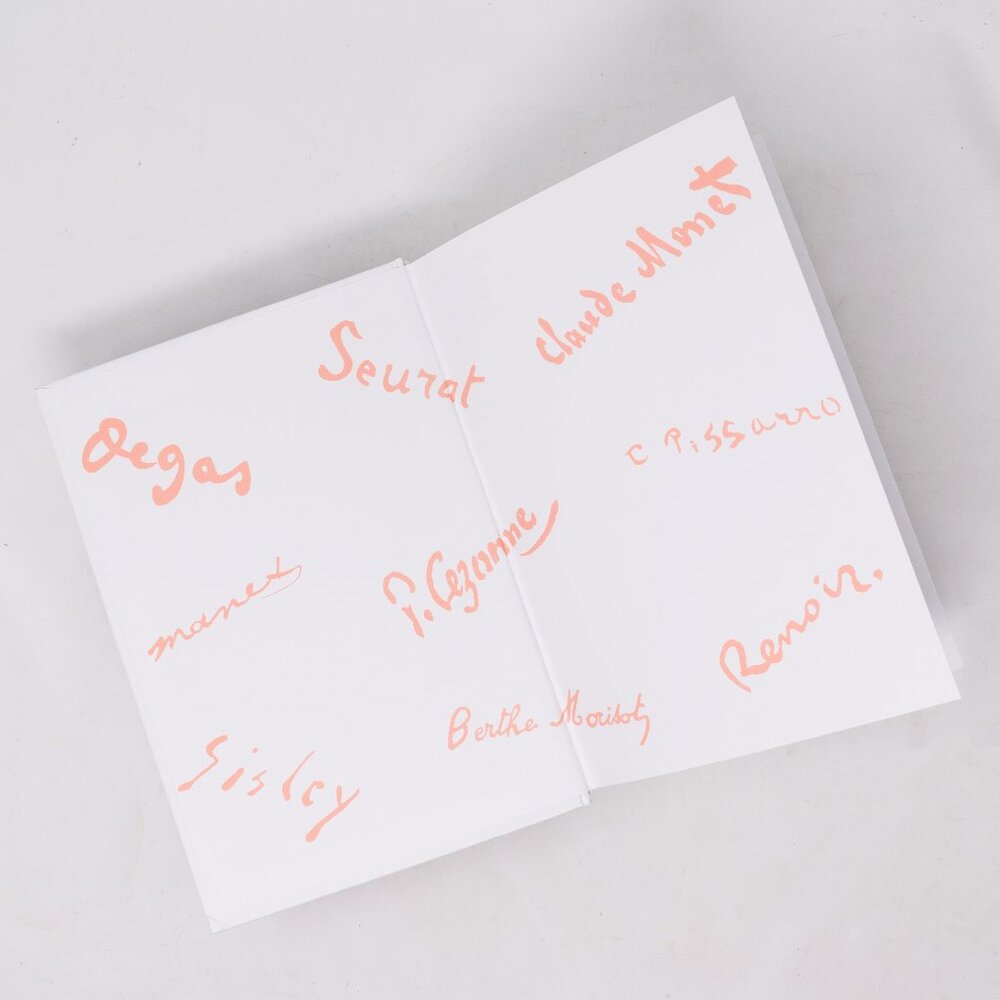 Seurat
Degas
manet
P. Cezanne
Sisley
Berthe Morisot
Claude Monet
C Pissarro
Renoir.